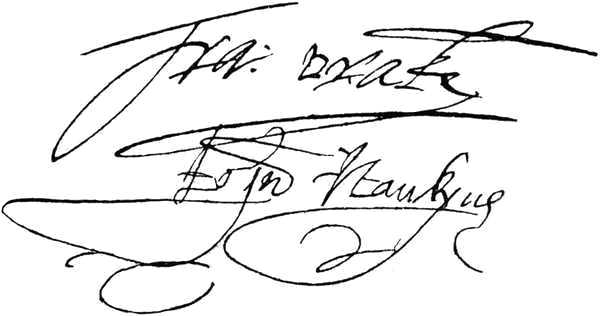 Fra: Drake
John Hawkyns